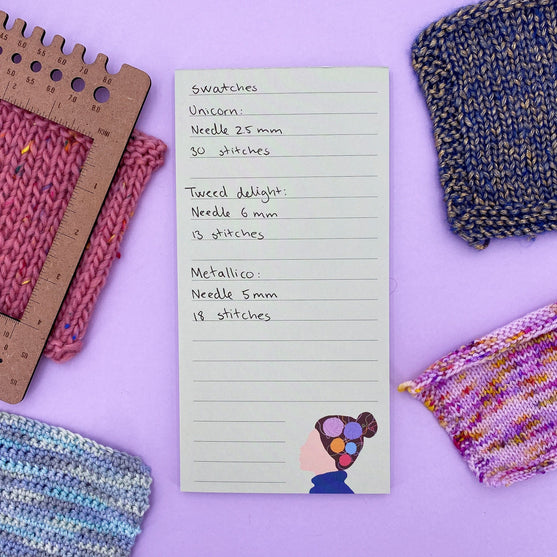 Swatches
Unicorn:
Needle 25 mm
30 stitches
Tweed delight:
Needle 6 mm
13 stitches
Metallico:
Needle 5 mm
18 stitches